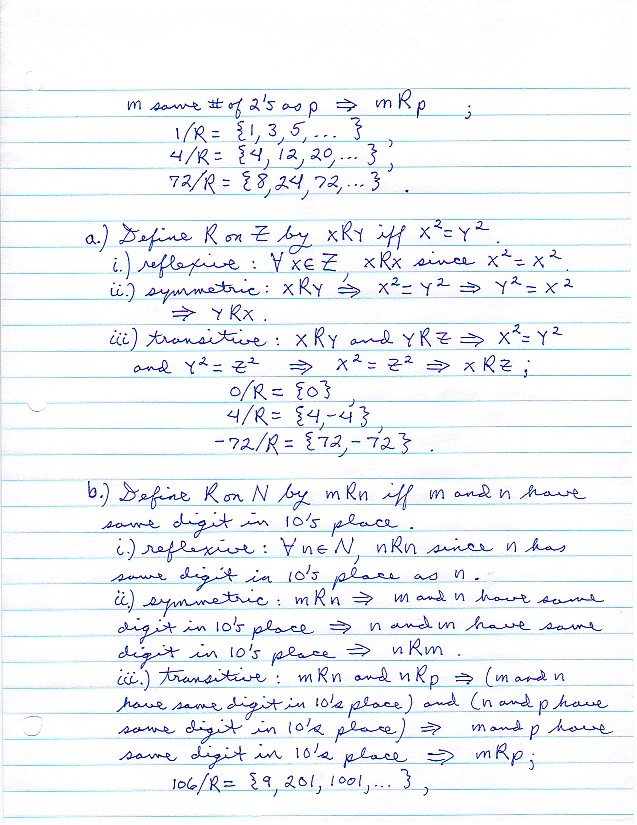 m same # of 2's as p ⇒ mRp ;
1/R = {1, 3, 5, ... } ,
4/R = {4, 12, 20, ... } ,
72/R = {8, 24, 72, ... } .
a.) Define R on Z by xRy iff x²=y² .
i.) reflexive : ∀ x∈Z, xRx since x²=x² .
ii.) symmetric : xRy ⇒ x²=y² ⇒ y²=x²
⇒ yRx .
iii) transitive : xRy and yRz ⇒ x²=y²
and y²=z² ⇒ x²=z² ⇒ xRz ;
0/R = {0} ,
4/R = {4,-4} ,
-72/R = {72,-72} .
b.) Define R on N by mRn iff m and n have
same digit in 10's place .
i.) reflexive : ∀ n∈N, nRn since n has
same digit in 10's place as n .
ii.) symmetric : mRn ⇒ m and n have same
digit in 10's place ⇒ n and m have same
digit in 10's place ⇒ nRm .
iii.) transitive : mRn and nRp ⇒ (m and n
have same digit in 10's place) and (n and p have
same digit in 10's place) ⇒ m and p have
same digit in 10's place ⇒ mRp ;
106/R = {9, 201, 1001, ... } ,